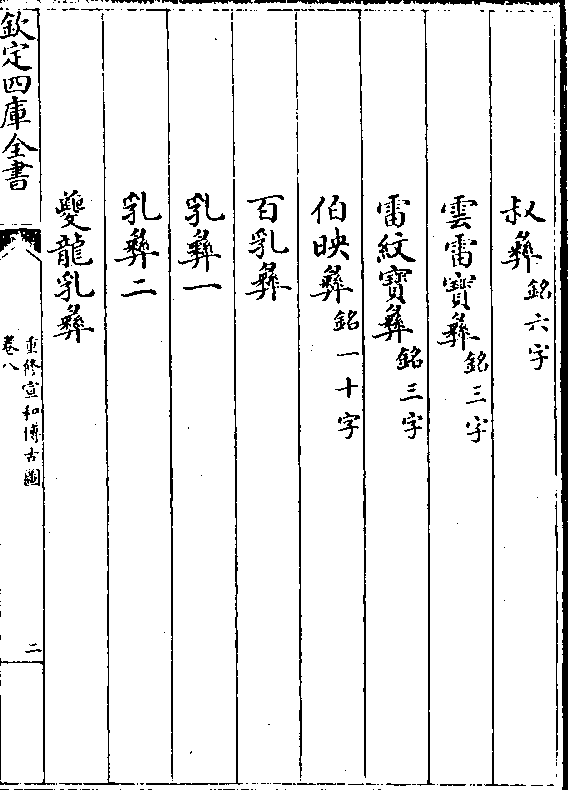 叔彝銘六字
雲雷寶彝銘三字
雷紋寶彝銘三字
伯映彝銘一十字
百乳彝
乳彝一
乳彝二
夔龍乳彝
欽定四庫全書
重修宣和博古圖
卷八
二